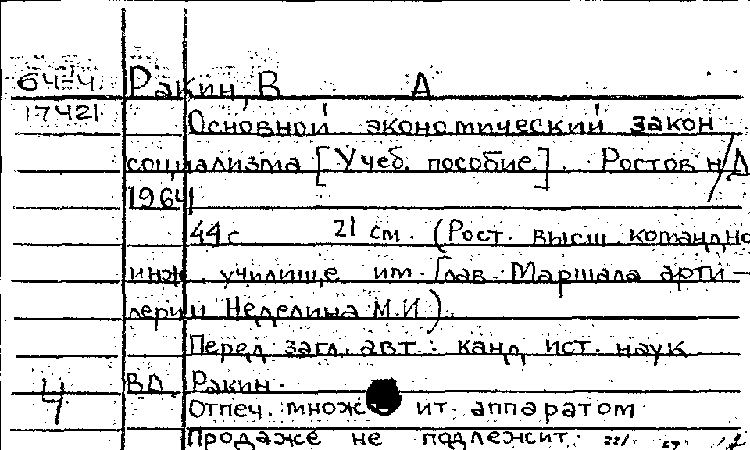 64-4 Ракин, В А
17421 Основной экономический закон
социализма [Учеб. пособие]. Ростов н/Д
1964
44 с 21 см. (Рост. высш командно
инж. училище им. Глав. Маршала арти-
лерии Неделина М.И).
Перед загл. авт: канд ист. наук
4 В.А. Ракин.
Отпеч. множ ит. аппаратом
Продаже не подлежит.